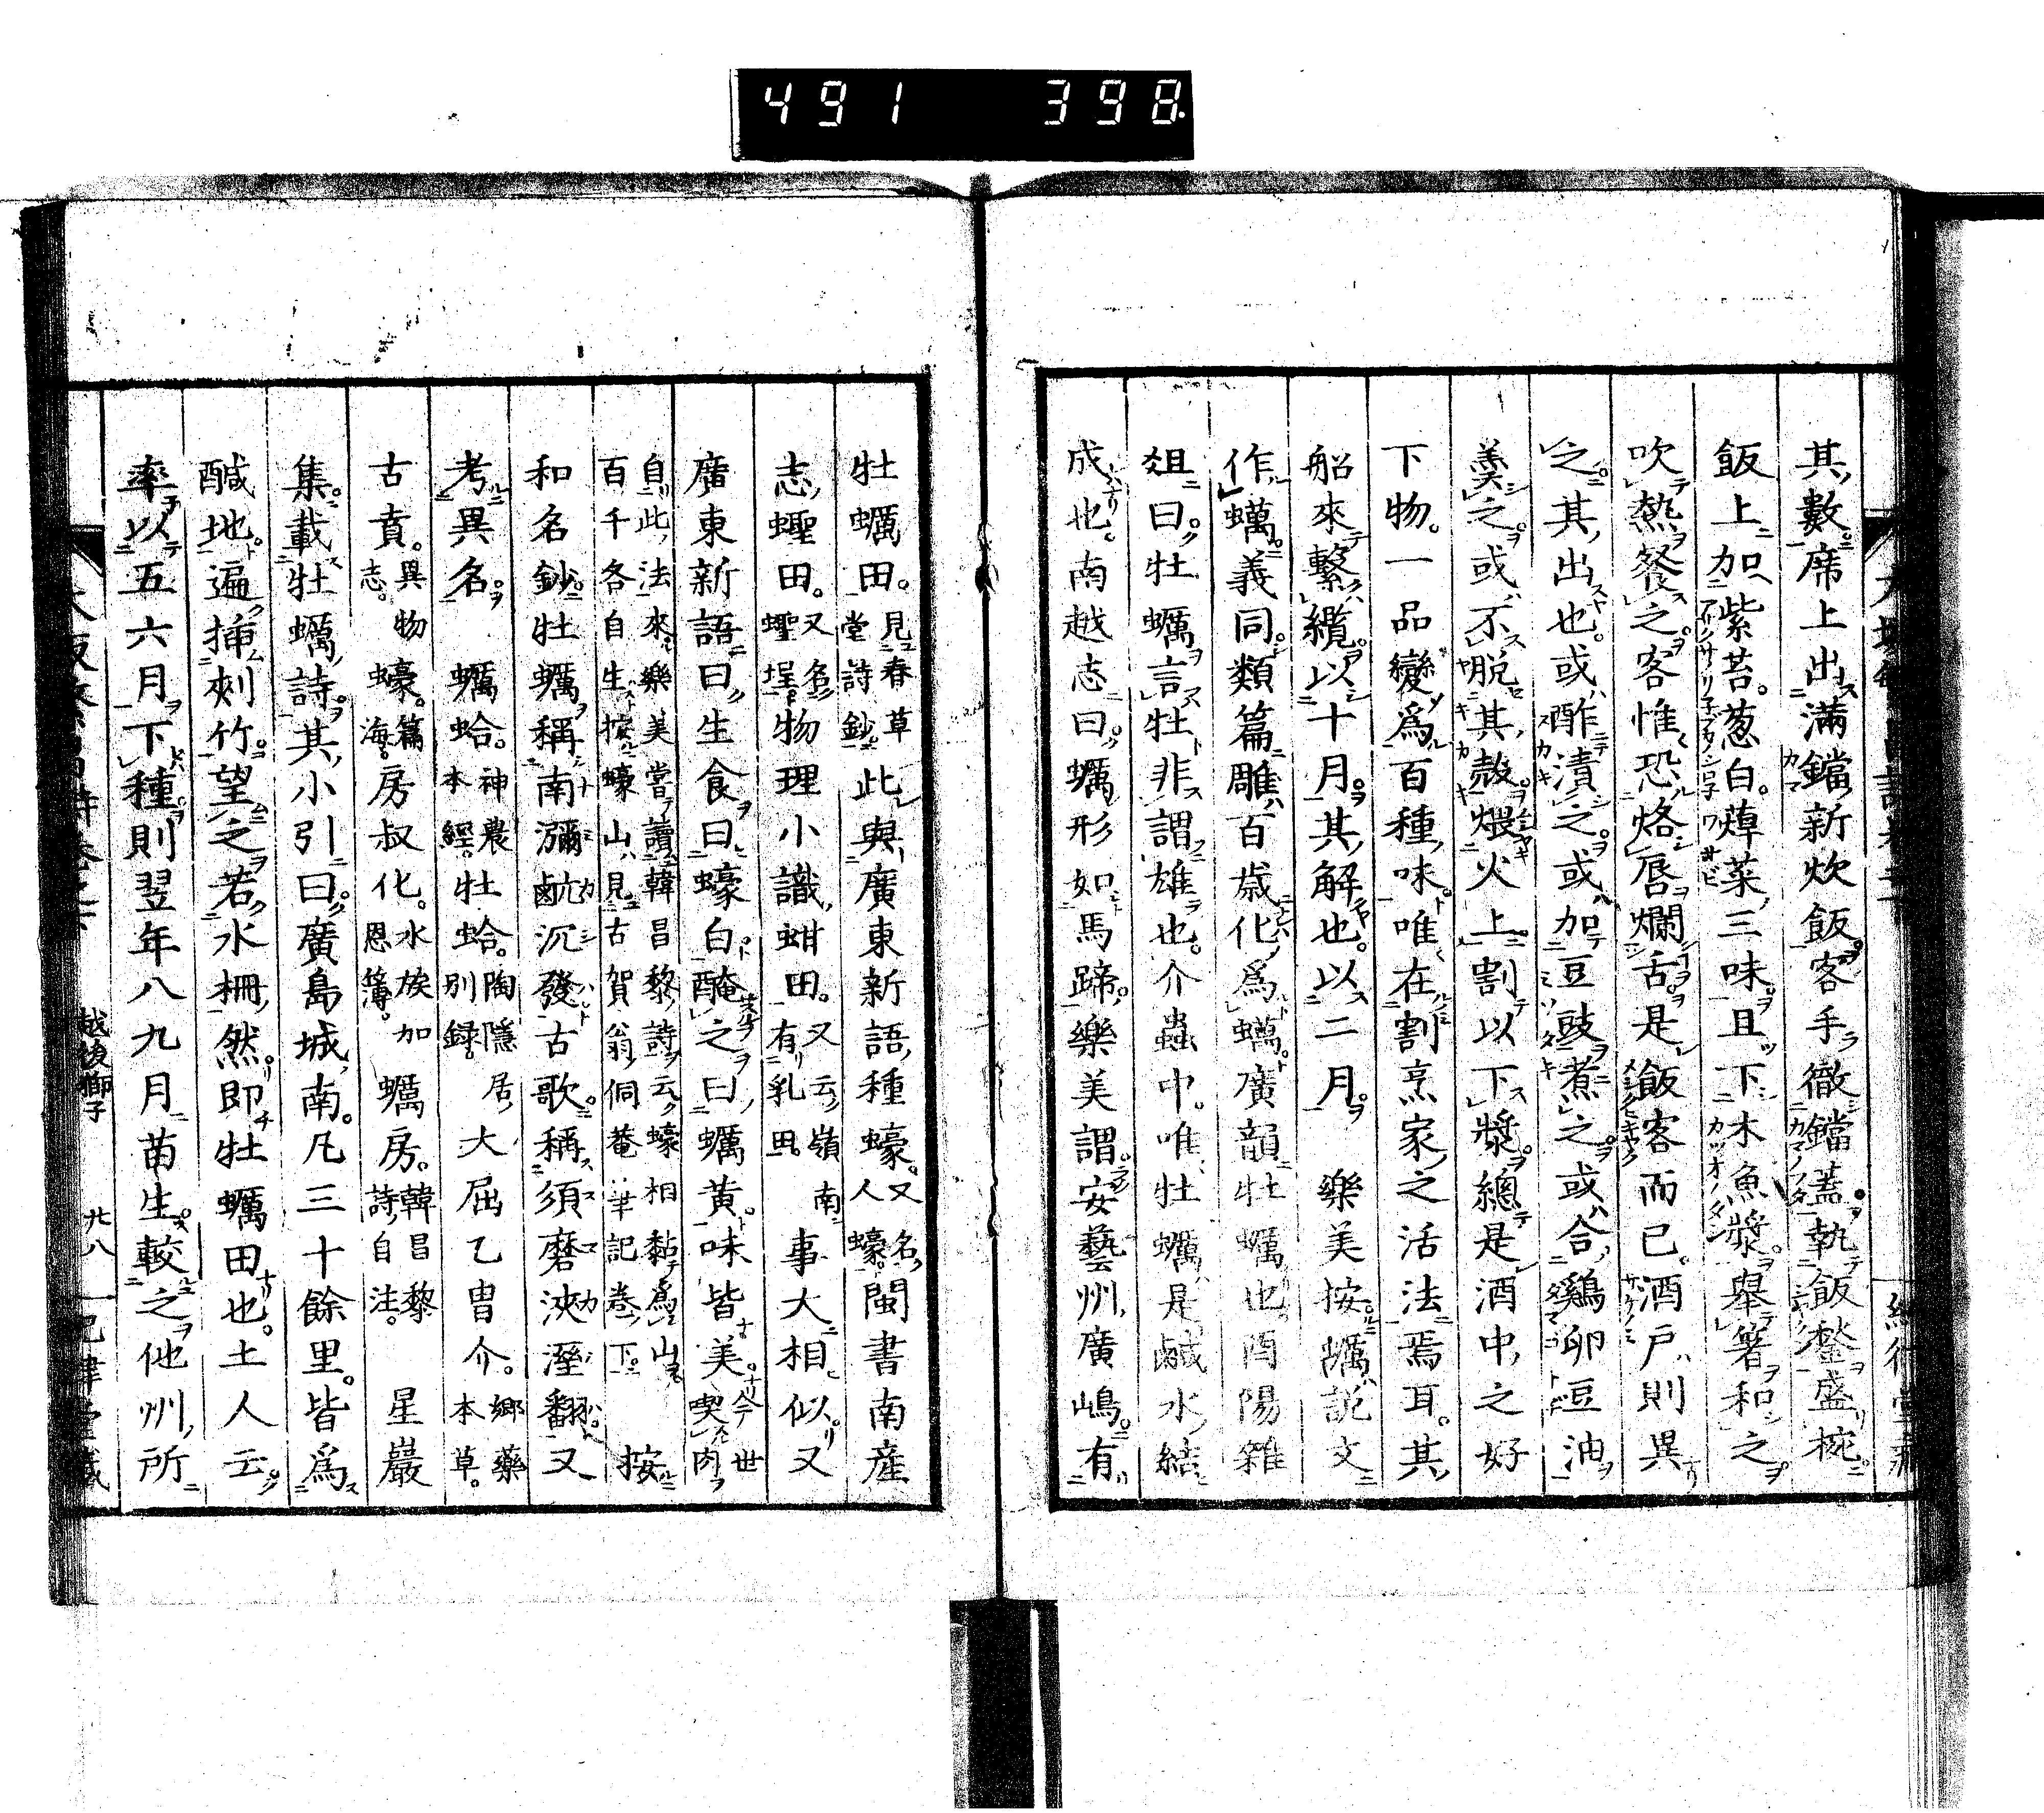 491 398
其數席上出滿鐺新炊飯客手徹鐺蓋執飯鍫盛椀
飯上加紫苔葱白蔊菜三味且下木魚漿舉箸和之
吹熱餐之客惟恐烙唇爛舌是飯客而已酒戸則異
之其出也或酢漬之或加豆豉煮之或合鷄卵豆油
羹之或不脱其殼煨火上割以下漿總是酒中之好
下物一品變爲百種味唯在割烹家之活法焉耳其
船來繫纜以十月其解也以二月 樂美按蠣説文
作蠇義同類篇雕百歳化爲蠣廣韻牡蠣也酉陽雜
俎曰牡蠣言牡非謂雄也介蟲中唯牡蠣是鹹水結
成也南越志曰蠣形如馬蹄樂美謂安藝州廣嶋有
牡蠣田見春草堂詩鈔此與廣東新語種蠔又名人蠔閩書南産
志蟶田又名蟶埕物理小識蚶田又云嶺南有乳田事大相似又
廣東新語曰生食曰蠔白醃之曰蠣黄味皆美世喫肉
自此法來樂美嘗讀韓昌黎詩云蠔相黏爲山百千各自生按蠔山見古賀翁侗菴筆記卷下 按
和名鈔牡蠣稱南瀰鹹沉發古歌稱須磨浹溼翻又
考異名 蠣蛤神農本經牡蛤陶隱居別録大屈乙曺介郷藥本草
古賁異物志蠔篇海房叔化水族加恩簿蠣房韓昌黎詩自注 星巖
集載牡蠣詩其小引曰廣島城南凡三十餘里皆爲
鹹地遍挿刺竹望之若水柵然即牡蠣田也土人云
率以五六月下種則翌年八九月苗生較之他州所
越後獅子
廿八